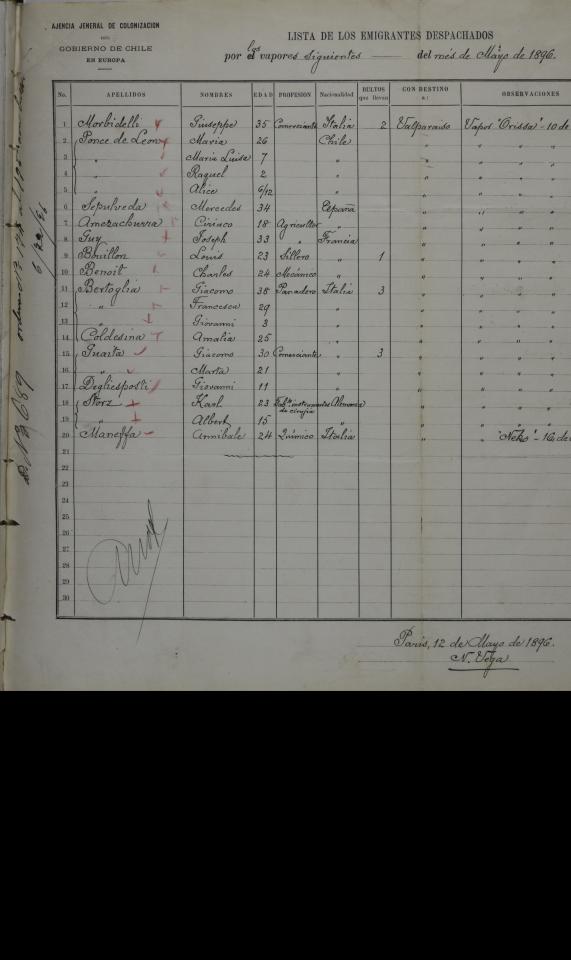 AJENCIA JENERAL DE COLONIZACION
DEL
GOBIERNO DE CHILE
EN EUROPA
LISTA DE LOS EMIGRANTES DESPACHADOS
por el los vapores siguientes del mes de Mayo de 1896.
No. APELLIDOS NOMBRES EDAD PROFESION Nacionalidad BULTOS que llevan CON DESTINO a: OBSERVACIONES
1 Morbidelli Giuseppe 35 Comerciante Italia 2 Valparaiso Vapor "Orissa" - 10 de
2 Ponce de Leon Maria 26 Chile " " " "
3 " Maria Luisa 7 " " " " "
4 " Raquel 2 " " " " "
5 " Alice 6/12 " " " " "
6 Sepulveda Mercedes 34 España " " " "
7 Amezachurra Ciriaco 18 Agricultor " " " " "
8 Guy Joseph 33 " Francia " " " "
9 Bouillon Louis 23 Sillero " 1 " " " "
10 Benoit Charles 24 Mecánico " " " " "
11 Bertoglia Giacomo 38 Panadero Italia 3 " " " "
12 " Francesca 29 " " " " "
13 " Giovanni 3 " " " " "
14 Coldesina Amalia 25 " " " " "
15 Guarta Giacomo 30 Comerciante " 3 " " " "
16 " Marta 21 " " " " "
17 Degliesposti Giovanni 11 " " " " "
18 Storz Karl 23 Fab.te instrumentos de cirujia Alemania " " " "
19 " Albert 15 " " " " "
20 Maneffa Annibale 24 Químico Italia " " "Neko" - 16 de
21
22
23
24
25
26
27
28
29
30
Paris, 12 de Mayo de 1896.
N. Vega